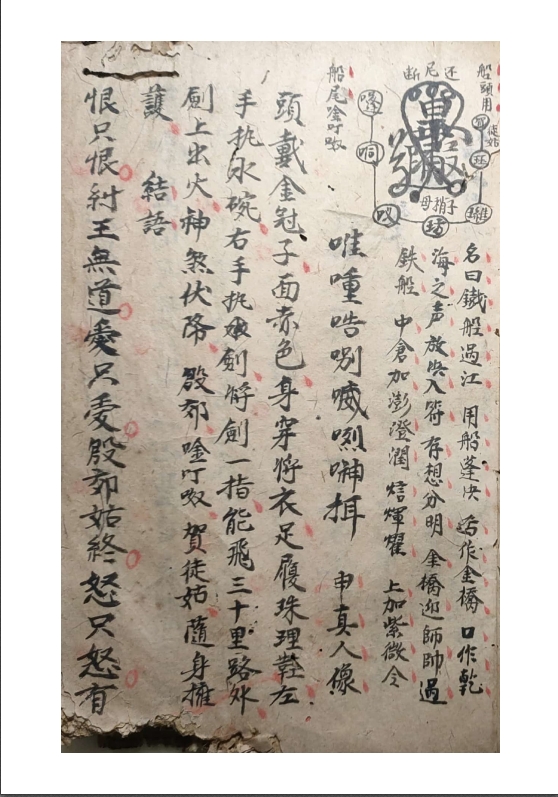 船頭用
断尾还
母捎子
船尾唵吖呶
名曰鐡船過江 用船蓬决 舌作金橋 口作乾
海之声 放决入符 存想分明 金橋迎師帥過
鉄船 中倉加澎澄潤 焙煇燿 上加紫微令
唯㖔哠哵喴㘁呻挕 申真人像
頭戴金冠子面赤色身穿将衣足履珠理鞋左
手执水碗右手执 劍 劍一指能飛三十里路外
劍上出火神煞伏降 殷郊唵吖呶 賀徒姑 隨身擁
護 結語
恨只恨紂王無道愛只愛殷郊姑終怒只怒有